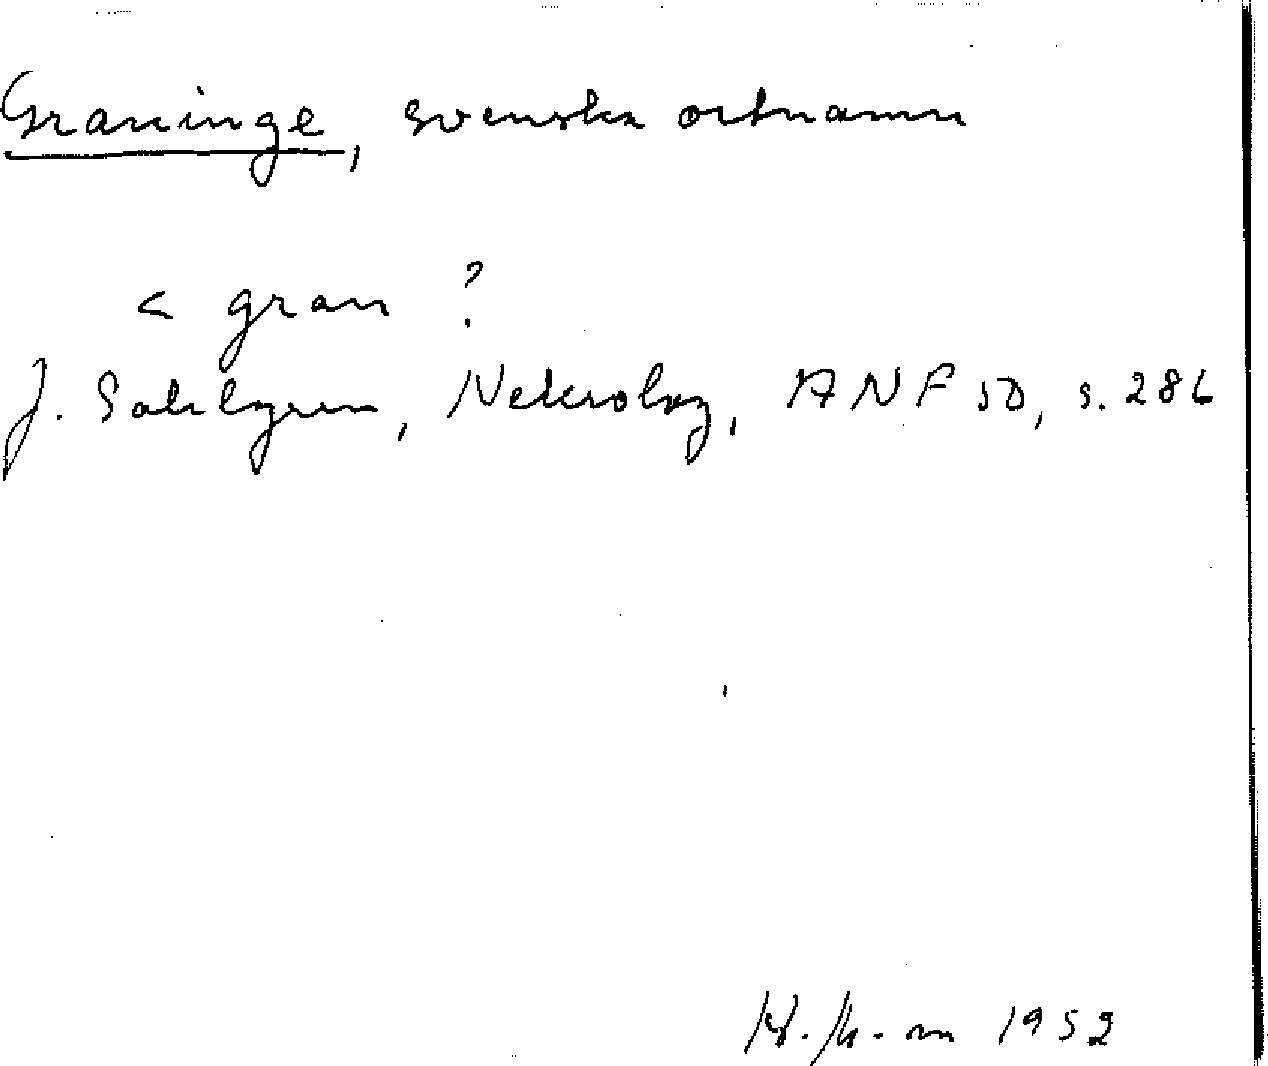 Graninge, svenska ortnamn
< gran ?
J. Sahlgren, Nekrolog, ANF 50, s. 286
1952